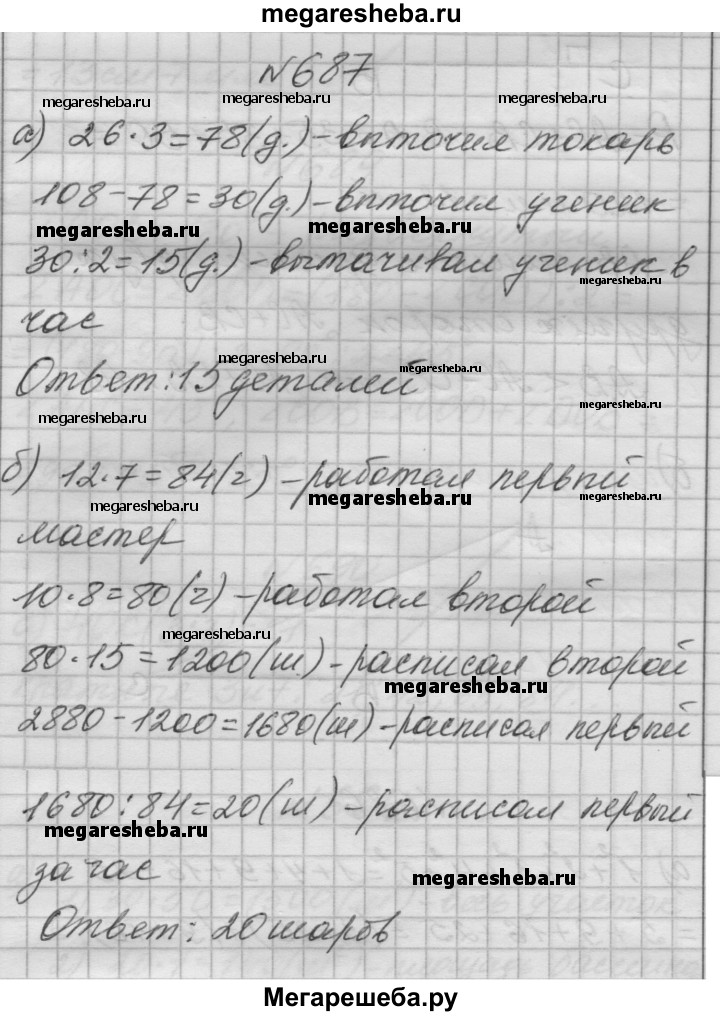 megaresheba.ru
№687
megaresheba.ru megaresheba.ru megaresheba.ru
а) 26·3=78(д.)-выточил токарь
108-78=30(д.)-выточил ученик
megaresheba.ru megaresheba.ru
30:2=15(д.)-вытачивал ученик в
megaresheba.ru
час
megaresheba.ru megaresheba.ru
Ответ:15 деталей
megaresheba.ru megaresheba.ru
б) 12·7=84(г)-работал первый
megaresheba.ru megaresheba.ru megaresheba.ru
мастер
10·8=80(г)-работал второй
megaresheba.ru
80·15=1200(ш.)-расписал второй
megaresheba.ru
2880-1200=1680(ш)-расписал первый
1680:84=20(ш)-расписал первый
megaresheba.ru
за час
megaresheba.ru
Ответ: 20 шаров
Мегарешеба.ру